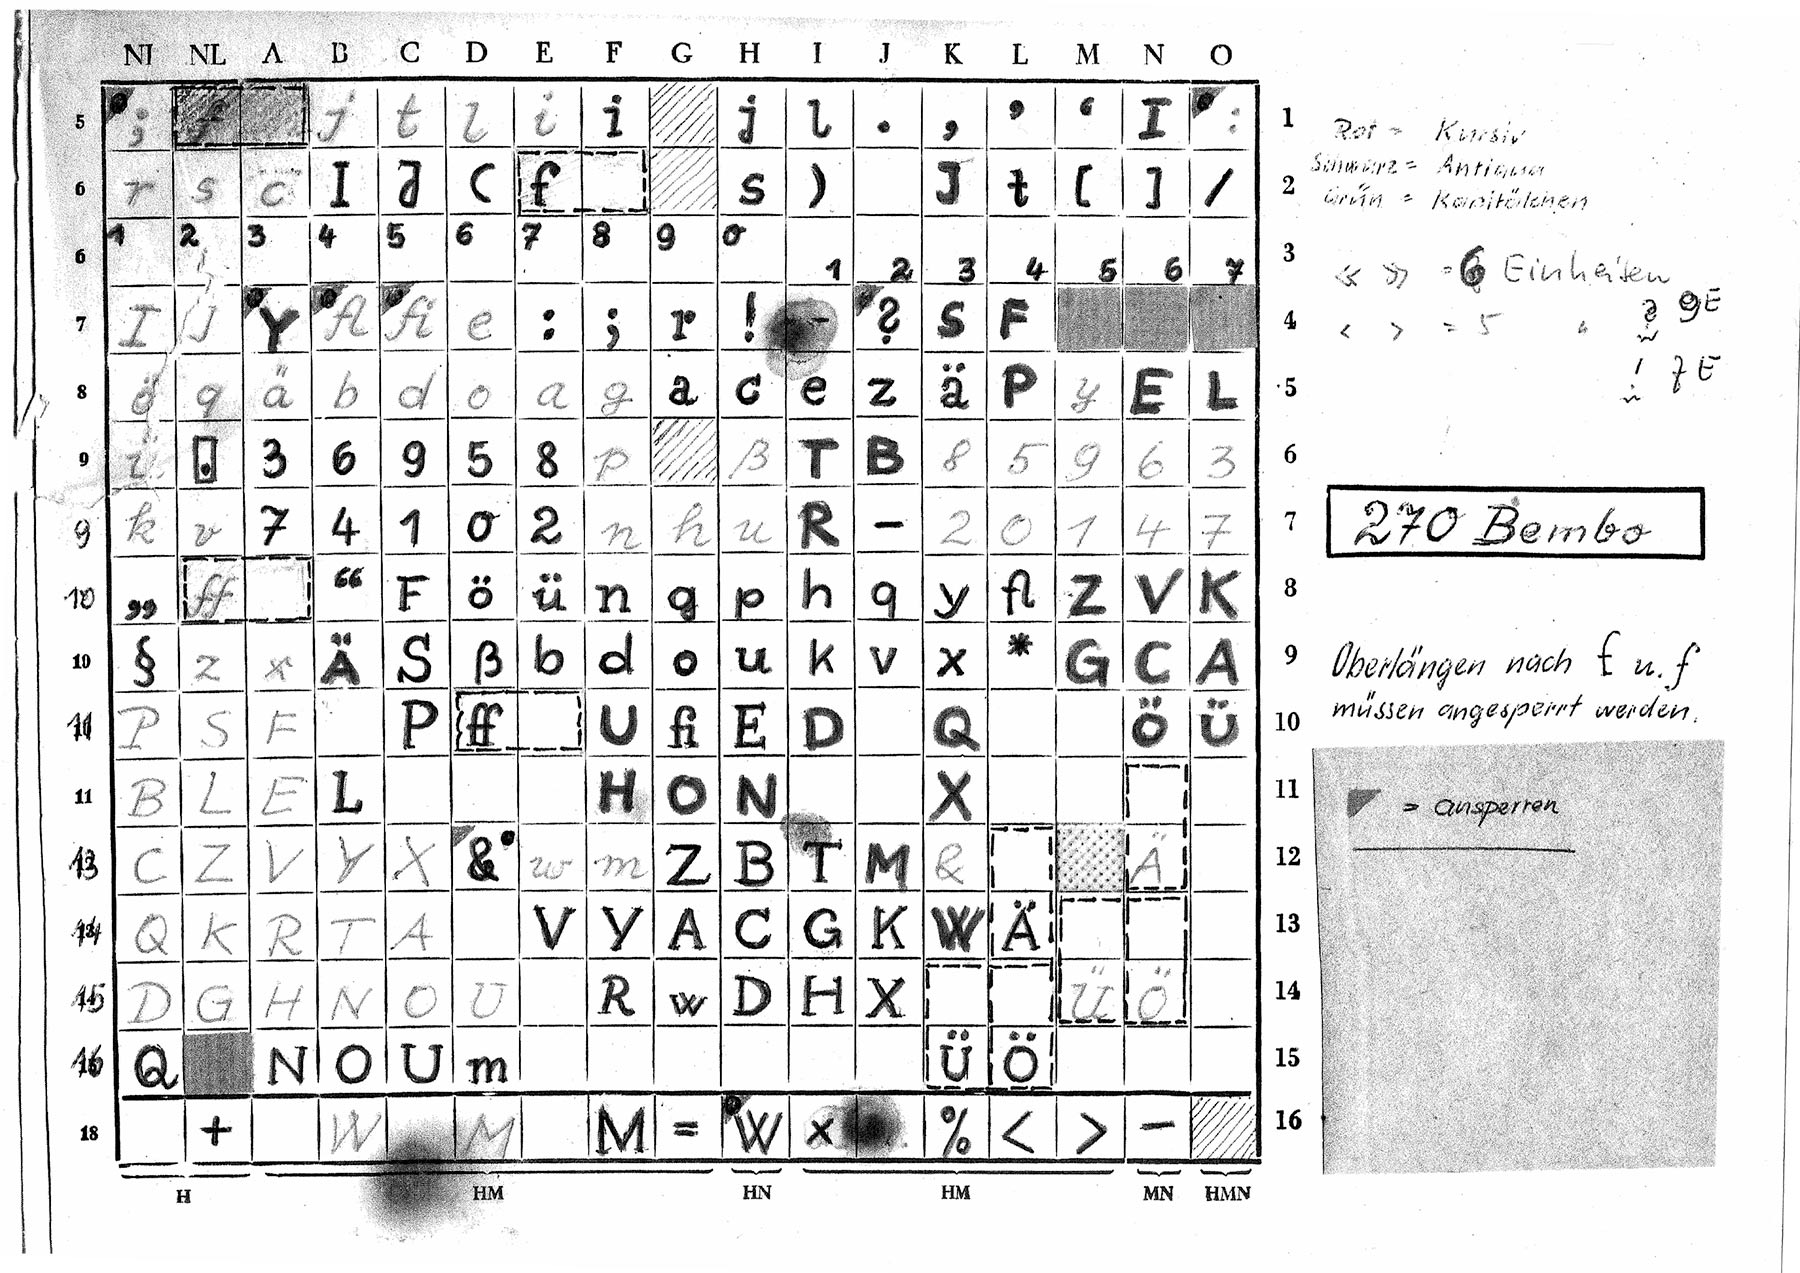 NI NL A B C D E F G H I J K L M N O
5 ; f j t l i i j l . , ’ ‘ I : 1
6 r s c I J ( f s ) J t [ ] / 2
6 1 2 3 4 5 6 7 8 9 0 1 2 3 4 5 6 7 3
7 I J Y fl fi e : ; r ! - ? S F 4
8 ö q ä b d o a g a c e z ä P y E L 5
9 ü . 3 6 9 5 8 p ß T B 8 5 9 6 3 6
9 k v 7 4 1 0 2 n h u R – 2 0 1 4 7 7
10 „ ff “ F ö ü n g p h q y fl Z V K 8
10 § z x Ä S ß b d o u k v x * G C A 9
11 P S F P ff U fi E D Q Ö Ü 10
11 B L E L H O N X 11
13 C Z V Y X & w m Z B T M & Ä 12
14 Q K R T A V Y A C G K W Ä 13
15 D G H N O U R w D H X Ü Ö 14
16 Q N O U m Ü Ö 15
18 + W M M = W x % < > – 16
H HM HN HM MN HMN
Rot = Kursiv
Schwarz = Antiqua
Grün = Kapitälchen
« » = 6 Einheiten
‹ › = 5 "
? 9E
! 7E
270 Bembo
Oberlängen nach f u. f
müssen angesperrt werden.
= ansperren